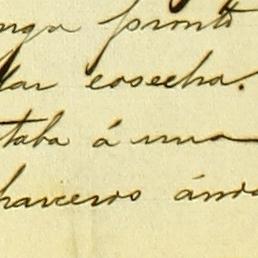 nga pronto
lar cosecha.
taba á una
harceros ánda